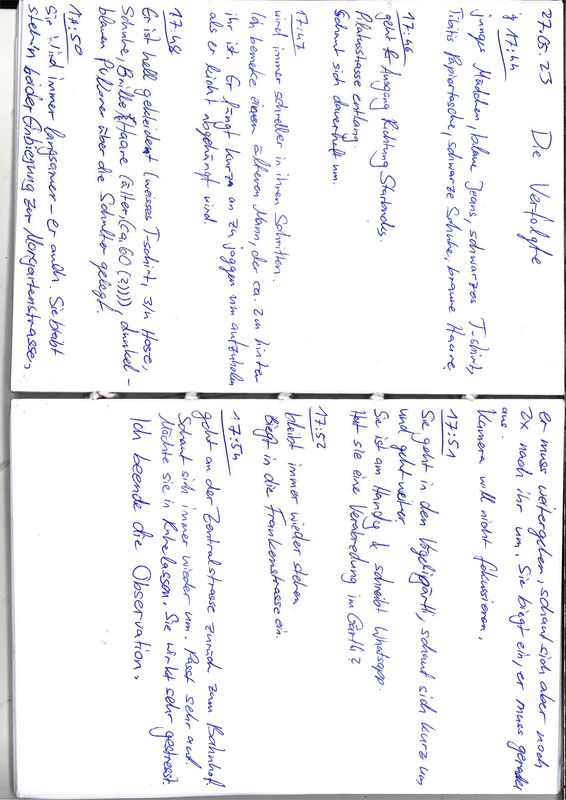 27.05.23 Die Verfolgte
17:44
junges Mädchen, blaue Jeans, schwarzes T-shirt,
Tibits Papiertasche, schwarze Schuhe, braune Haare,
17:46
geht Ausgang Richtung Starbucks.
Pilatusstrasse entlang.
Schaut sich dauerhaft um.
17:47
wird immer schneller in ihren Schritten.
Ich bemerke einen älteren Mann, der ca. 2m hinter
ihr ist. Er fängt kurz an zu joggen um aufzuholen
als er leicht abgehängt wird.
17:48
Er ist hell gekleidet (weisses T-shirt, 3/4 Hose,
Schuhe, Brille, Haare (älter, (ca. 60(?)))), dunkel-
blauen Pullover über die Schulter gelegt.
17:50
Sie wird immer langsamer - er auch. Sie bleibt
stehen bei der Einbiegung zur Morgartenstrasse,
er muss weitergehen, schaut sich aber noch
2x nach ihr um. Sie biegt ein, er muss gerade
aus.
Kamera will nicht fokussieren.
17:51
Sie geht in den Vögeligärtli, schaut sich kurz um
und geht weiter
Sie ist am Handy & schreibt Whatsapp.
Hat sie eine Verabredung im Gärtli?
17:52
bleibt immer wieder stehen.
Biegt in die Frankenstrasse ein.
17:54
geht an der Zentralstrasse zurück zum Bahnhof.
Schaut sich immer wieder um. Passt sehr auf.
Möchte sie in Ruhe lassen. Sie wirkt sehr gestresst.
Ich beende die Observation.